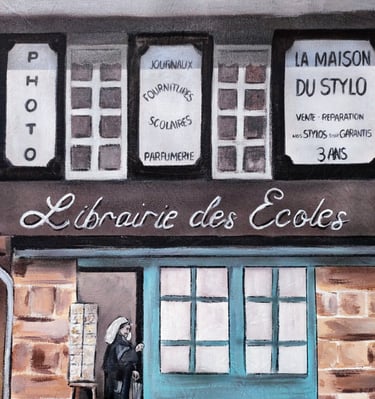 PHOTO
JOURNAUX
FOURNITURES
SCOLAIRES
PARFUMERIE
LA MAISON
DU STYLO
VENTE - REPARATION
NOS STYLOS SONT GARANTIS
3 ANS
Librairie des Ecoles